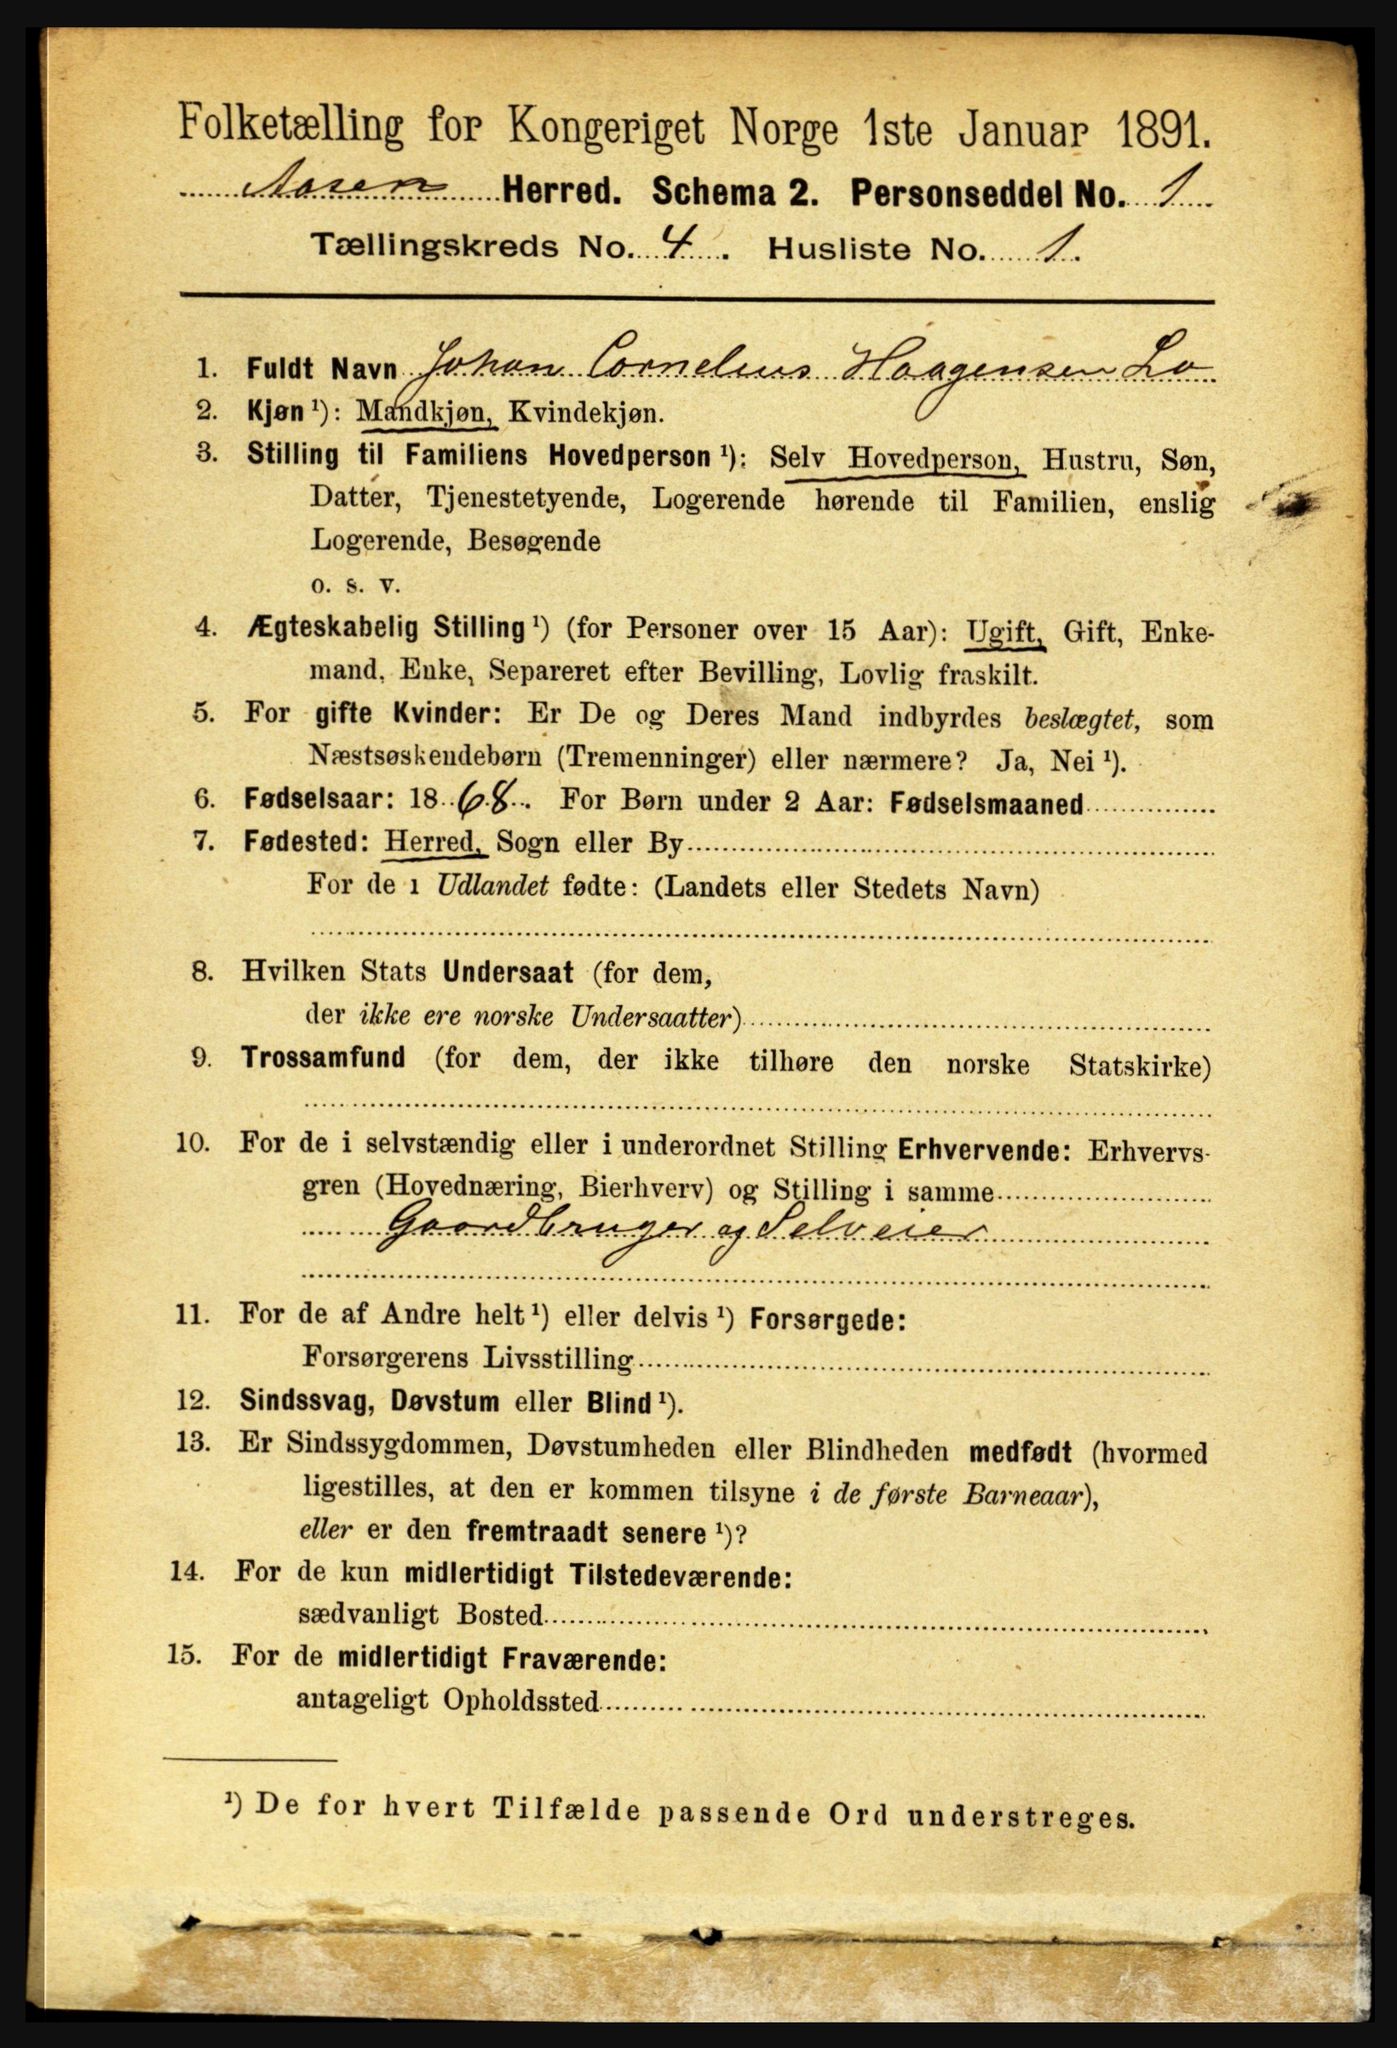 Folketælling for Kongeriget Norge 1ste Januar 1891.
Aasen Herred. Schema 2. Personseddel No. 1
Tællingskreds No. 4. Husliste No. 1.
1. Fuldt Navn Johan Cornelius Haagensen Lo
2. Kjøn ¹): Mandkjøn, Kvindekjøn.
3. Stilling til Familiens Hovedperson ¹): Selv Hovedperson, Hustru, Søn,
Datter, Tjenestetyende, Logerende hørende til Familien, enslig
Logerende, Besøgende
o. s. v.
4. Ægteskabelig Stilling ¹) (for Personer over 15 Aar): Ugift, Gift, Enke-
mand, Enke, Separeret efter Bevilling, Lovlig fraskilt.
5. For gifte Kvinder: Er De og Deres Mand indbyrdes beslægtet, som
Næstsøskendebørn (Tremenninger) eller nærmere? Ja, Nei ¹).
6. Fødselsaar: 1868. For Børn under 2 Aar: Fødselsmaaned
7. Fødested: Herred, Sogn eller By
For de i Udlandet fødte: (Landets eller Stedets Navn)
8. Hvilken Stats Undersaat (for dem,
der ikke ere norske Undersaatter)
9. Trossamfund (for dem, der ikke tilhøre den norske Statskirke)
10. For de i selvstændig eller i underordnet Stilling Erhvervende: Erhvervs-
gren (Hovednæring, Bierhverv) og Stilling i samme
Gaardbruger og Selveier
11. For de af Andre helt ¹) eller delvis ¹) Forsørgede:
Forsørgerens Livsstilling
12. Sindssvag, Døvstum eller Blind ¹).
13. Er Sindssygdommen, Døvstumheden eller Blindheden medfødt (hvormed
ligestilles, at den er kommen tilsyne i de første Barneaar),
eller er den fremtraadt senere ¹)?
14. For de kun midlertidigt Tilstedeværende:
sædvanligt Bosted
15. For de midlertidigt Fraværende:
antageligt Opholdssted
¹) De for hvert Tilfælde passende Ord understreges.